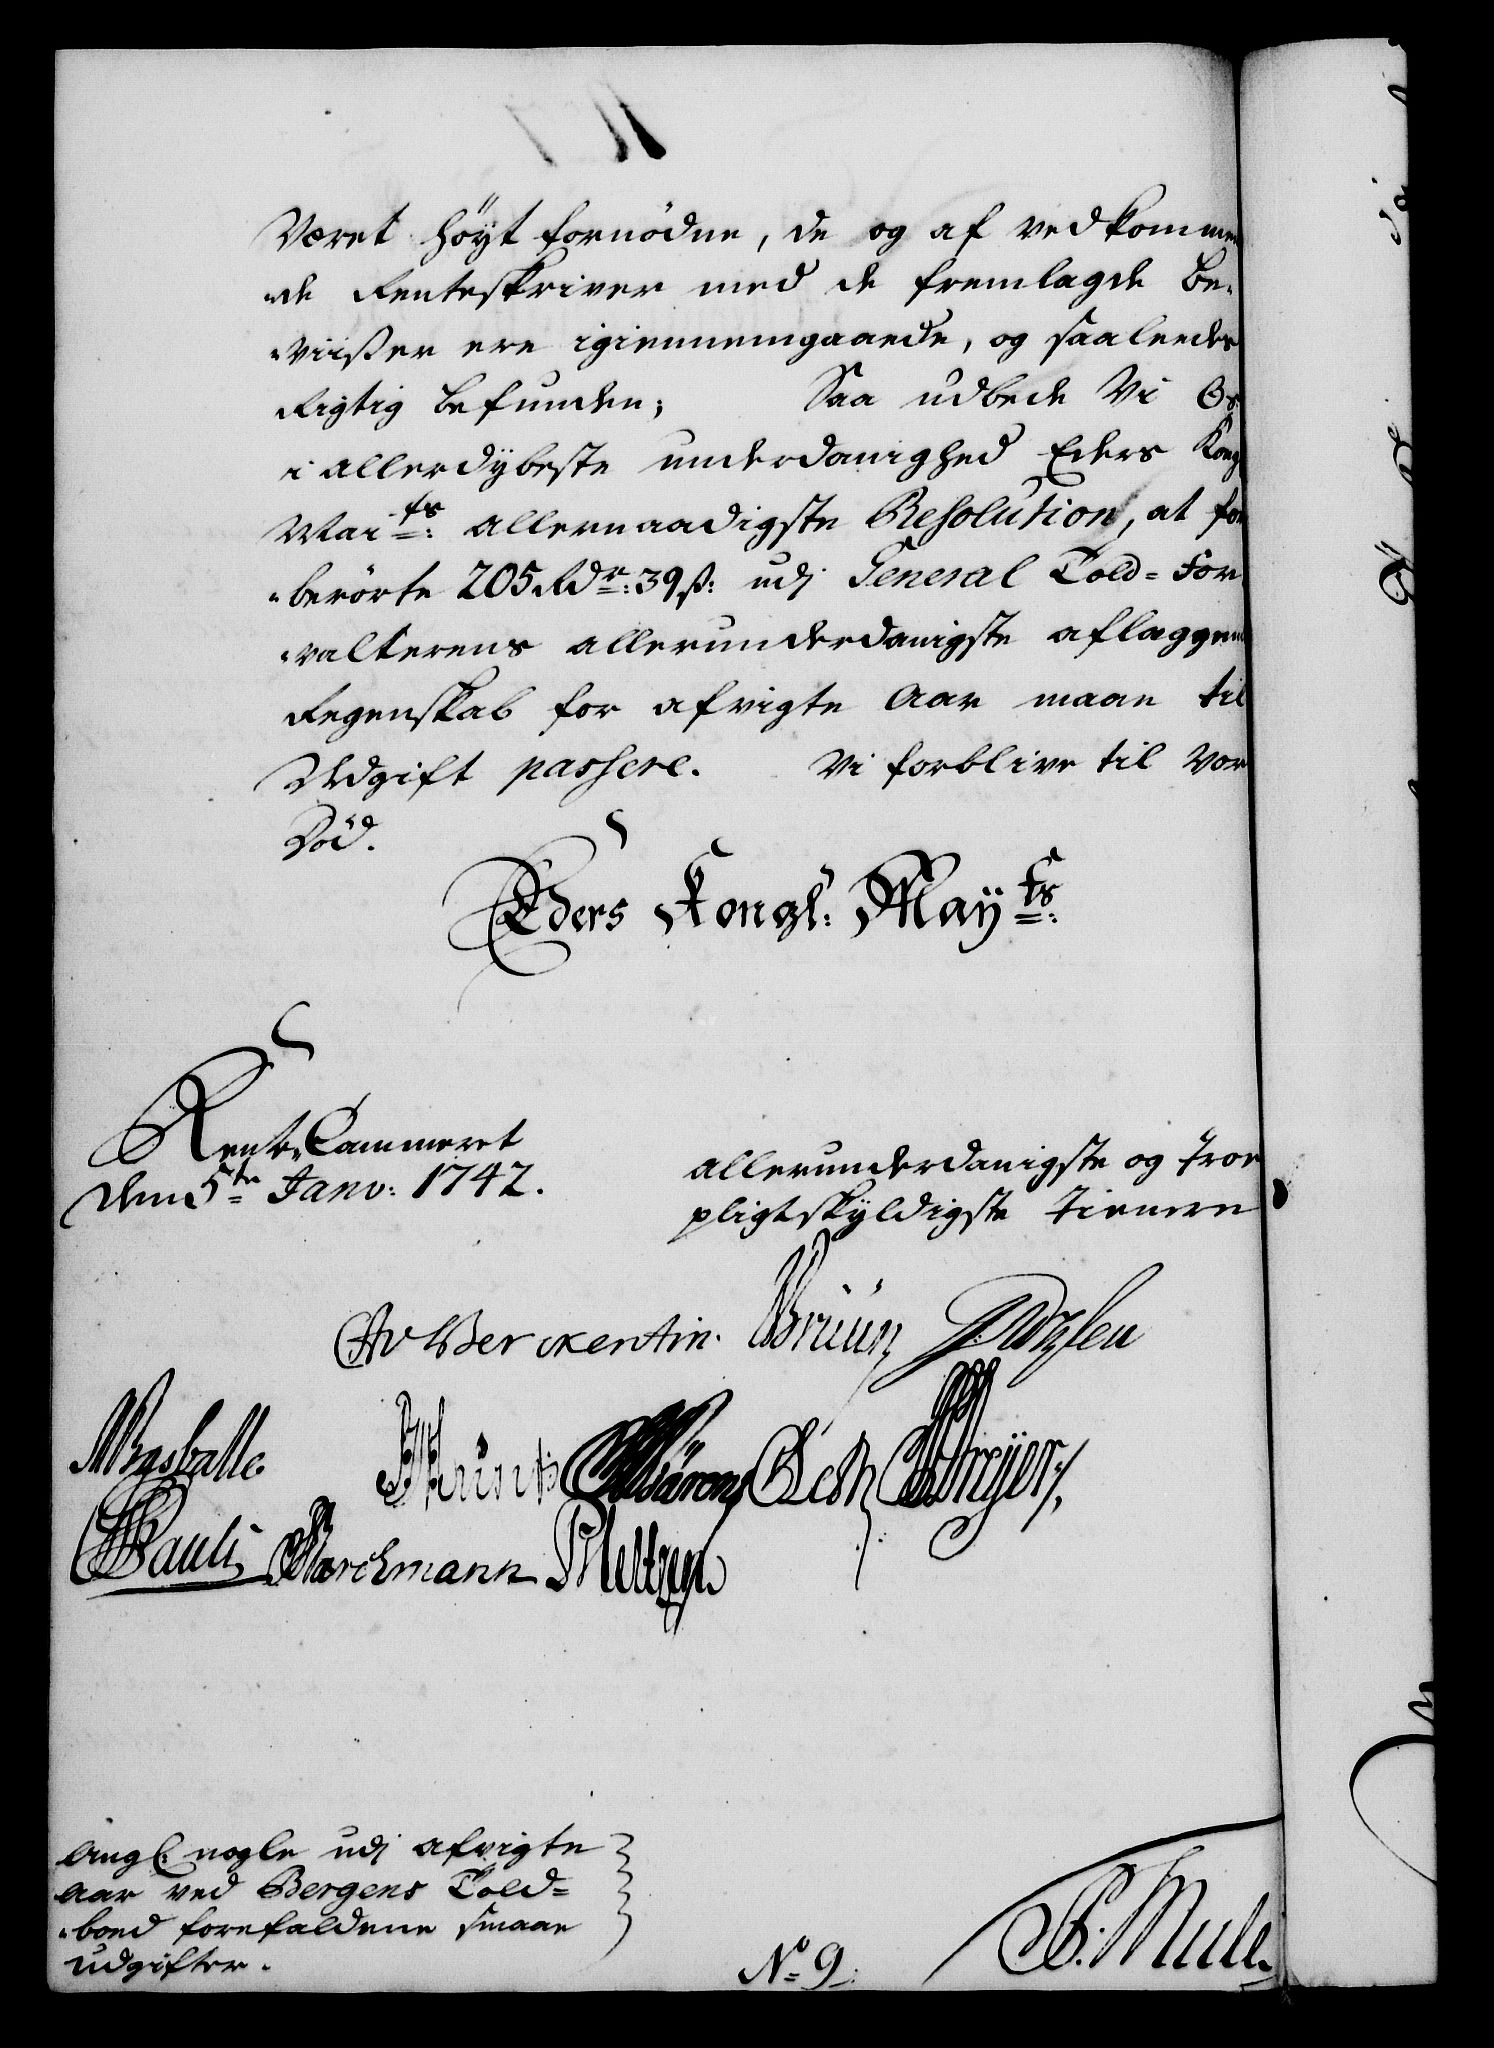 Været höyt fornödne, de og af vedkommen
-de Renteskriver med de fremlagde Be-
-viißer ere igiennemgaaede, og saaleedes
Rigtig befunden; Saa udbede Vi Os
i allerdÿbeste underdanighed Eders Kong
Mai^ts: allernaadigste Resolution, at for
-berörte 205 Rd^r: 39 ß: udj General Told-For
-valterens allerunderdanigste aflaggende
Regenskab for afvigte Aar maae til
Udgift passere. Vi forblive til Vor
Död.
Eders Kongl: Maÿ^ts:
Rente Cammeret
den 5^te Janv: 1742.
allerunderdanigste og troe
pligtskÿldigste tienere
CAv Berckentin. Bruun
Pauli Borchmann
Angl: nogle udj afvigte
Aar ved Bergens Told-
-boed forefaldene smaae
udgifter.
N^o 9
P. Mule